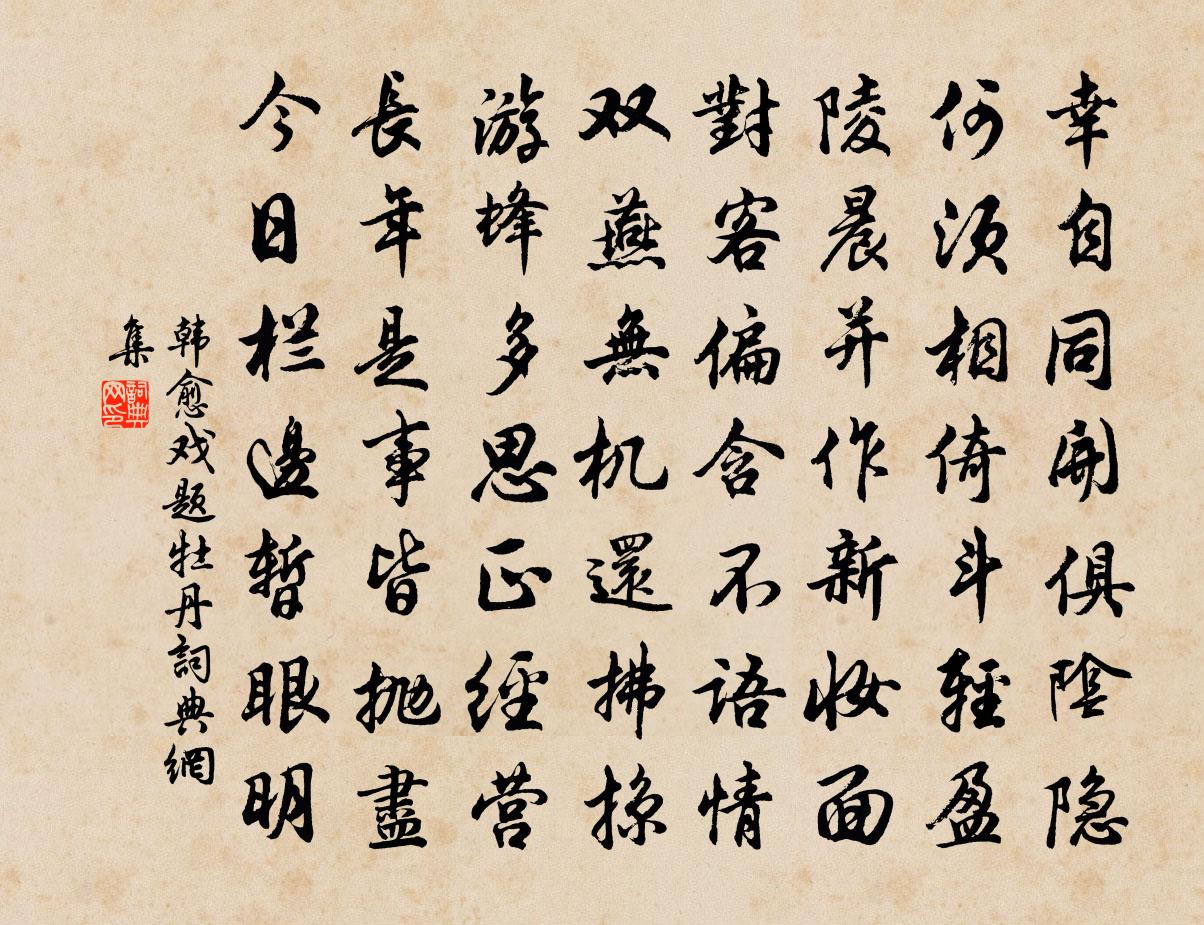 幸自同開俱陰隐
何須相倚斗輕盈
陵晨并作新妆面
對客偏含不語情
双燕無机還拂掠
游蜂多思正經营
長年是事皆抛盡
今日栏邊暫眼明
韩愈戏题牡丹詞典網
集
詞典
网印